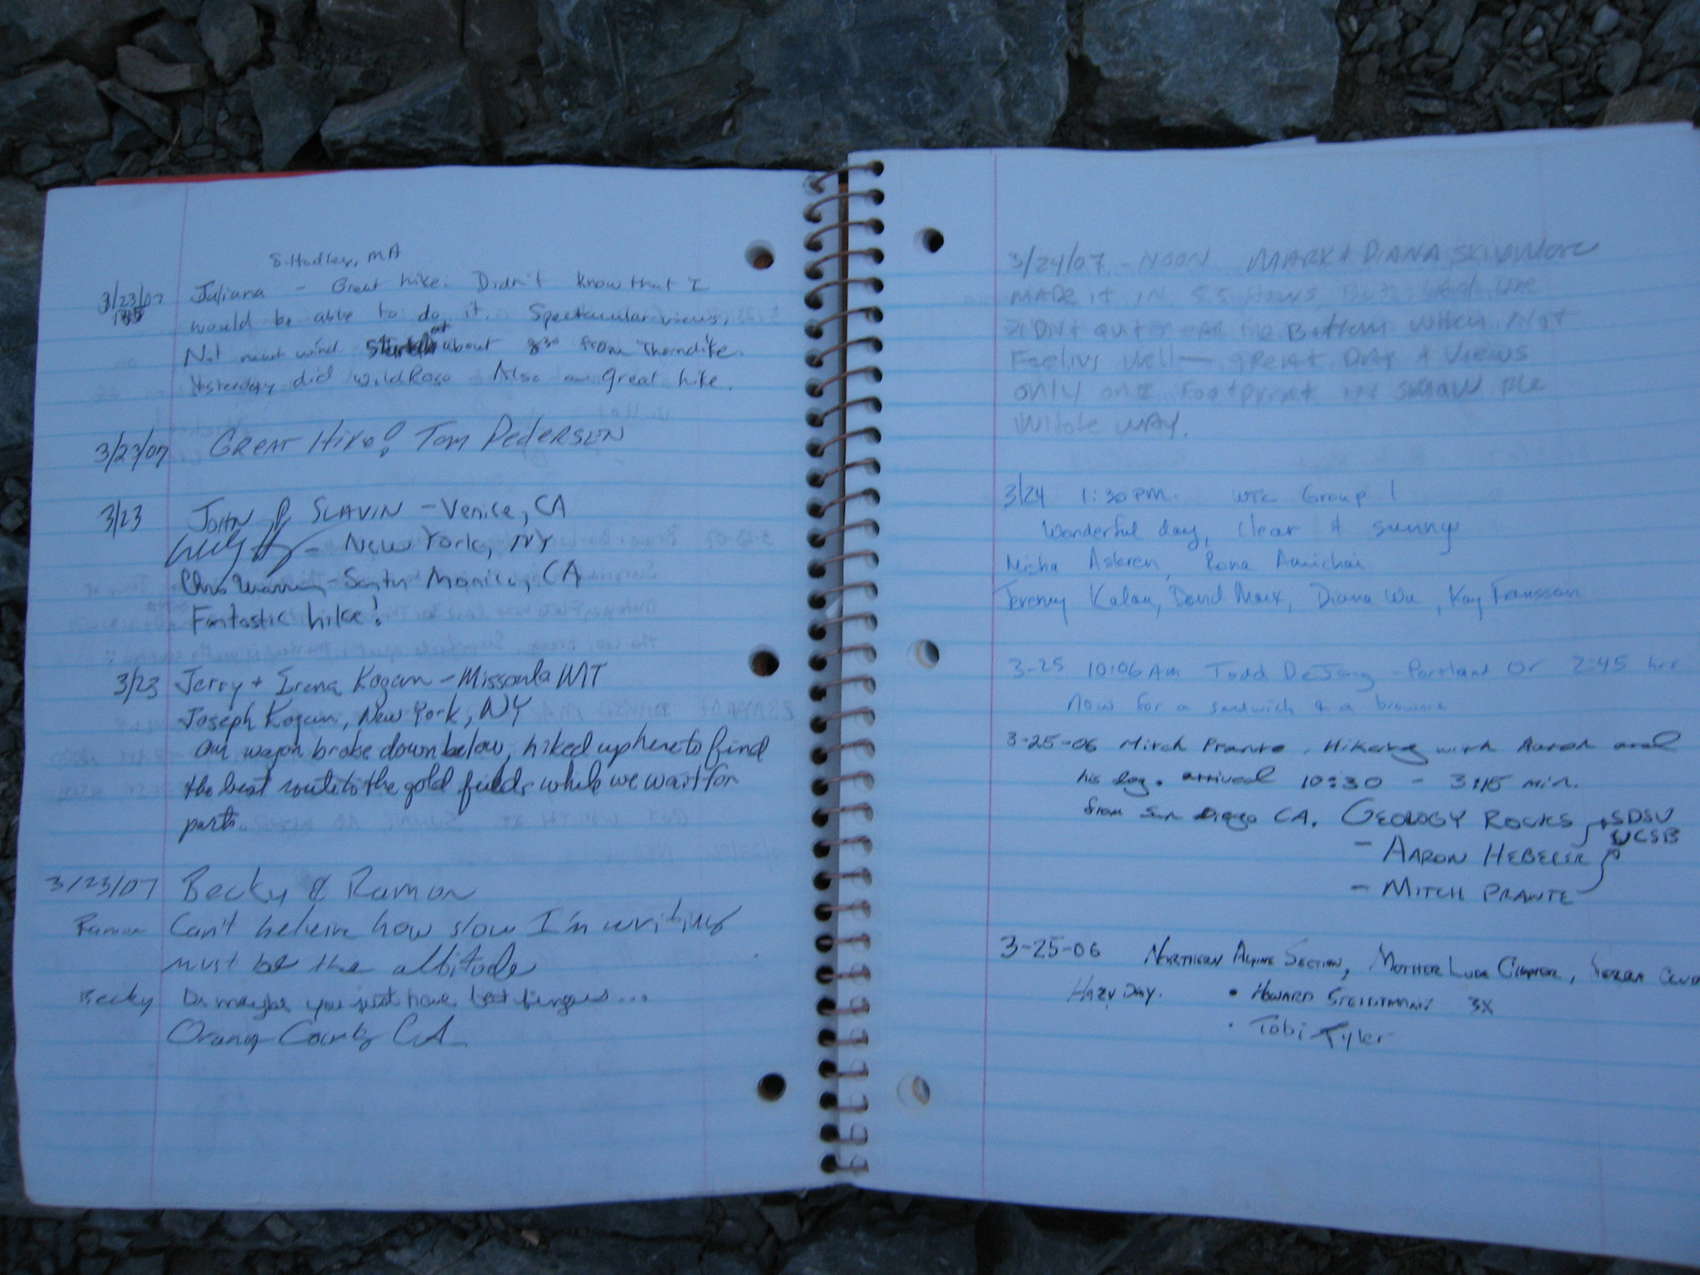 S. Hadley, MA
3/23/07 Juliana - Great hike. Didn't know that I
would be able to do it. Spectacular views.
Not much wind at about 830 from Thorndike.
Yesterday did WildRose Also a great hike.
3/23/07 GREAT HIKE! TOM PEDERSEN
3/23 JOHN P SLAVIN - Venice, CA
- New York, NY
Chris Warning - Santa Monica, CA
Fantastic hike!
3/23 Jerry + Irena Kogan - Missoula MT
Joseph Kogan, New York, NY
Our wagon broke down below, hiked up here to find
the best route to the gold fields while we wait for
parts.
3/23/07 Becky & Ramon
Ramon Can't believe how slow I'm writing
must be the altitude
Becky Or maybe you just have
Orange County CA
3/24/07 - NOON MARK & DIANA SKIDMORE
MADE it in 5.5 Hours But
DIDN't quit Bottom when Not
Feeling Well - great Day & Views
only one Footprint in snow the
Whole WAY.
3/24 1:30 PM. WTC Group 1
Wonderful day, clear & sunny
Misha Askren, Rona Amichai
Jeremy Kalan, David Marx, Diana Wu, Kay Franssain
3-25 10:06 AM Todd DeJong - Portland Or 2:45 hrs
Now for a sandwich & a brownie
3-25-06 Mitch Prante, Hiking with Aaron and
his dog. arrived 10:30 - 3:15 min.
from San Diego CA. GEOLOGY ROCKS SDSU
UCSB
- AARON HEBELER
- MITCH PRANTE
3-25-06 NORTHERN ALPINE SECTION, MOTHER LODE CHAPTER, SIERRA CLUB
HAZY DAY. • HOWARD 3X
• Tobi Tyler